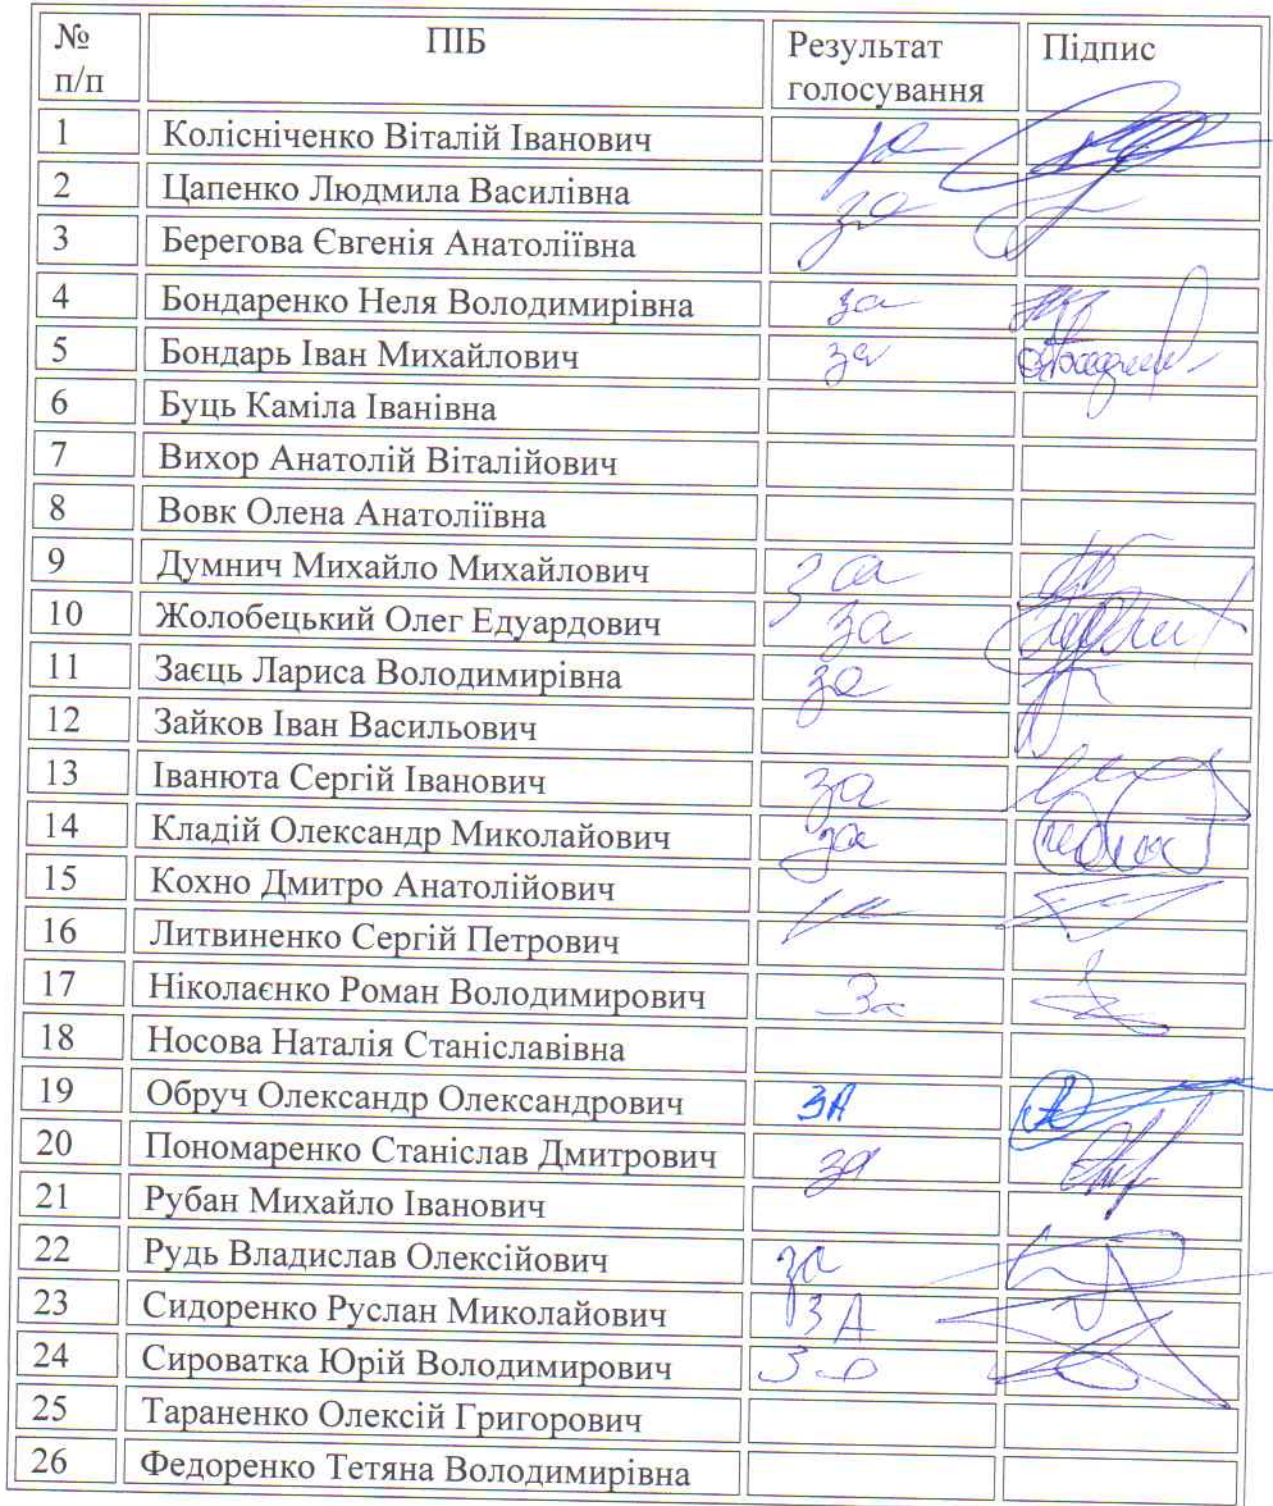 № п/п ПІБ Результат голосування Підпис
1 Колісніченко Віталій Іванович за
2 Цапенко Людмила Василівна за
3 Берегова Євгенія Анатоліївна
4 Бондаренко Неля Володимирівна за
5 Бондарь Іван Михайлович за
6 Буць Каміла Іванівна
7 Вихор Анатолій Віталійович
8 Вовк Олена Анатоліївна
9 Думнич Михайло Михайлович за
10 Жолобецький Олег Едуардович за
11 Заєць Лариса Володимирівна за
12 Зайков Іван Васильович
13 Іванюта Сергій Іванович за
14 Кладій Олександр Миколайович за
15 Кохно Дмитро Анатолійович за
16 Литвиненко Сергій Петрович
17 Ніколаєнко Роман Володимирович За
18 Носова Наталія Станіславівна
19 Обруч Олександр Олександрович ЗА
20 Пономаренко Станіслав Дмитрович за
21 Рубан Михайло Іванович
22 Рудь Владислав Олексійович за
23 Сидоренко Руслан Миколайович ЗА
24 Сироватка Юрій Володимирович За
25 Тараненко Олексій Григорович
26 Федоренко Тетяна Володимирівна